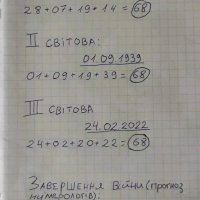 28+07+19+14=68
II СВІТОВА:
01.09.1939
01+09+19+39=68
III СВІТОВА
24.02.2022
24+02+20+22=68
ЗАВЕРШЕННЯ ВІЙНИ (ПРОГНОЗ
НУМЕРОЛОГІВ):